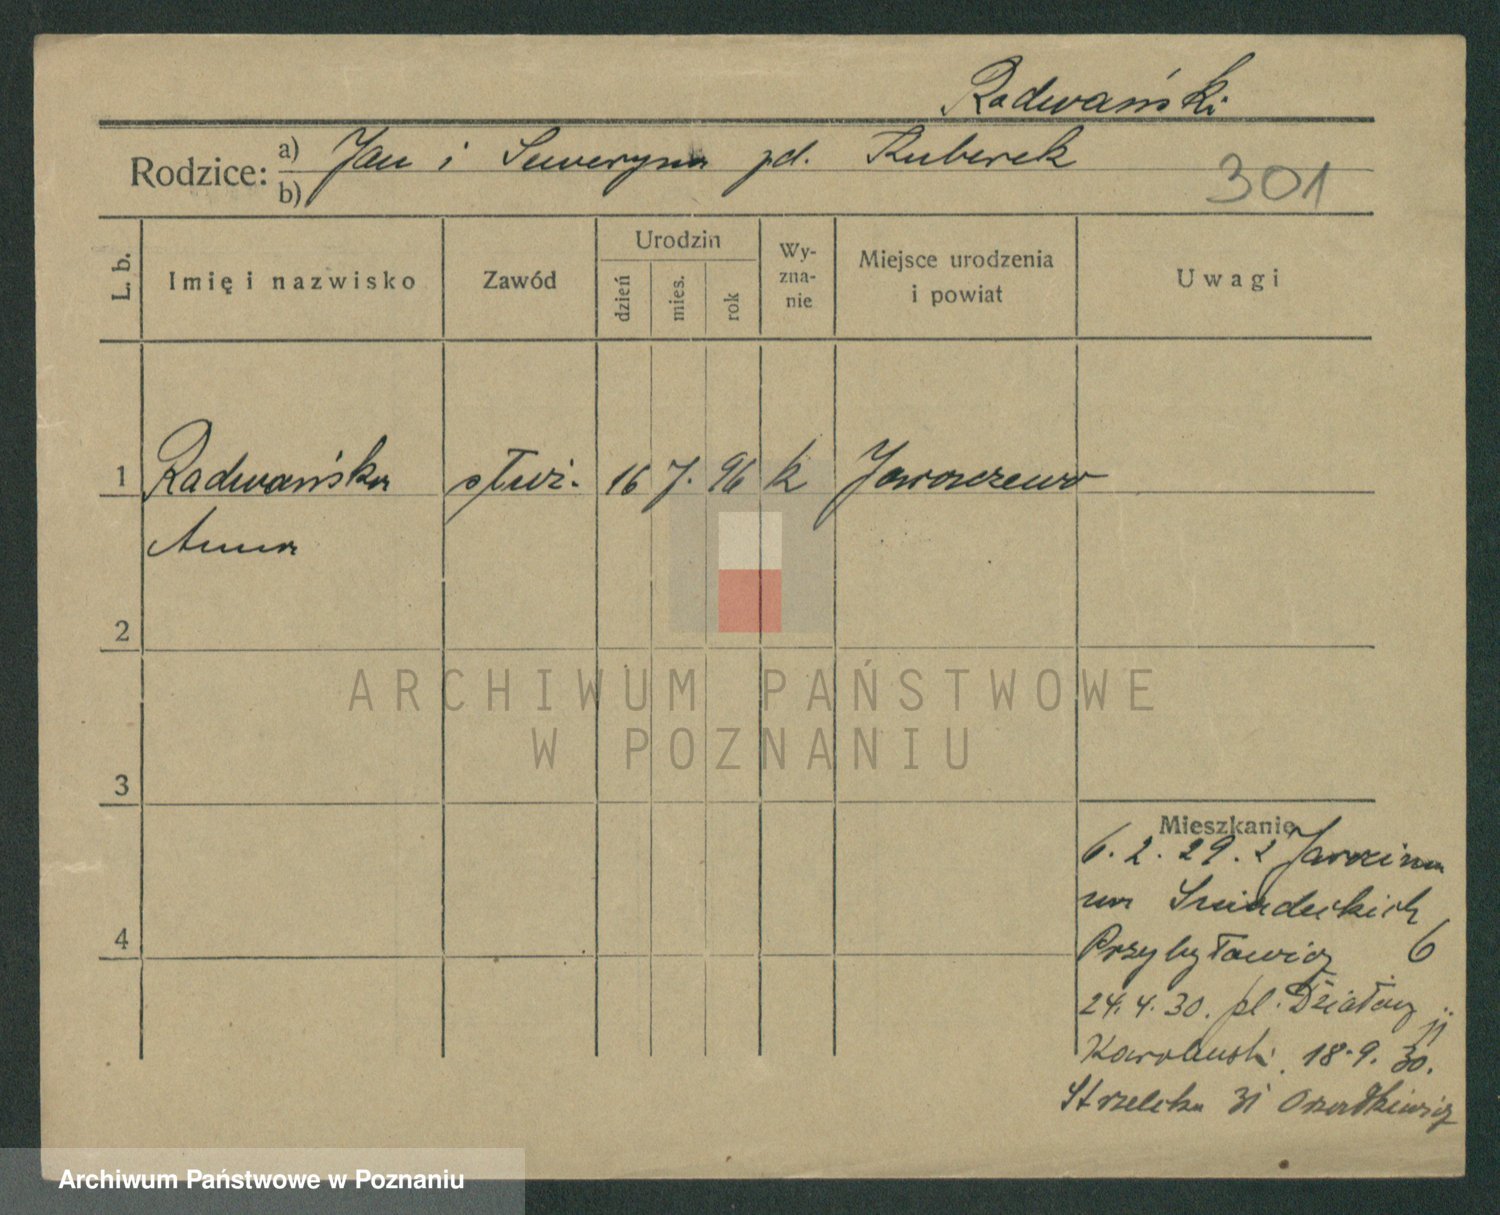 Radwański
Rodzice: a) Jan i Seweryna zd. Kuberek
b)
301
L. b. Imię i nazwisko Zawód Urodzin dzień mies. rok Wy-zna-nie Miejsce urodzenia i powiat Uwagi
1 Radwańska służ. 16 7. 96 k Jaroszewo
Anna
2
3
4
Mieszkanie
6. 2. 29. z Jarocina
na Śniadeckich
Przybyławicz 6
24. 4. 30. pl. Działowy
18. 9. 30.
Strzelecka 31
ARCHIWUM PAŃSTWOWE
W POZNANIU
Archiwum Państwowe w Poznaniu